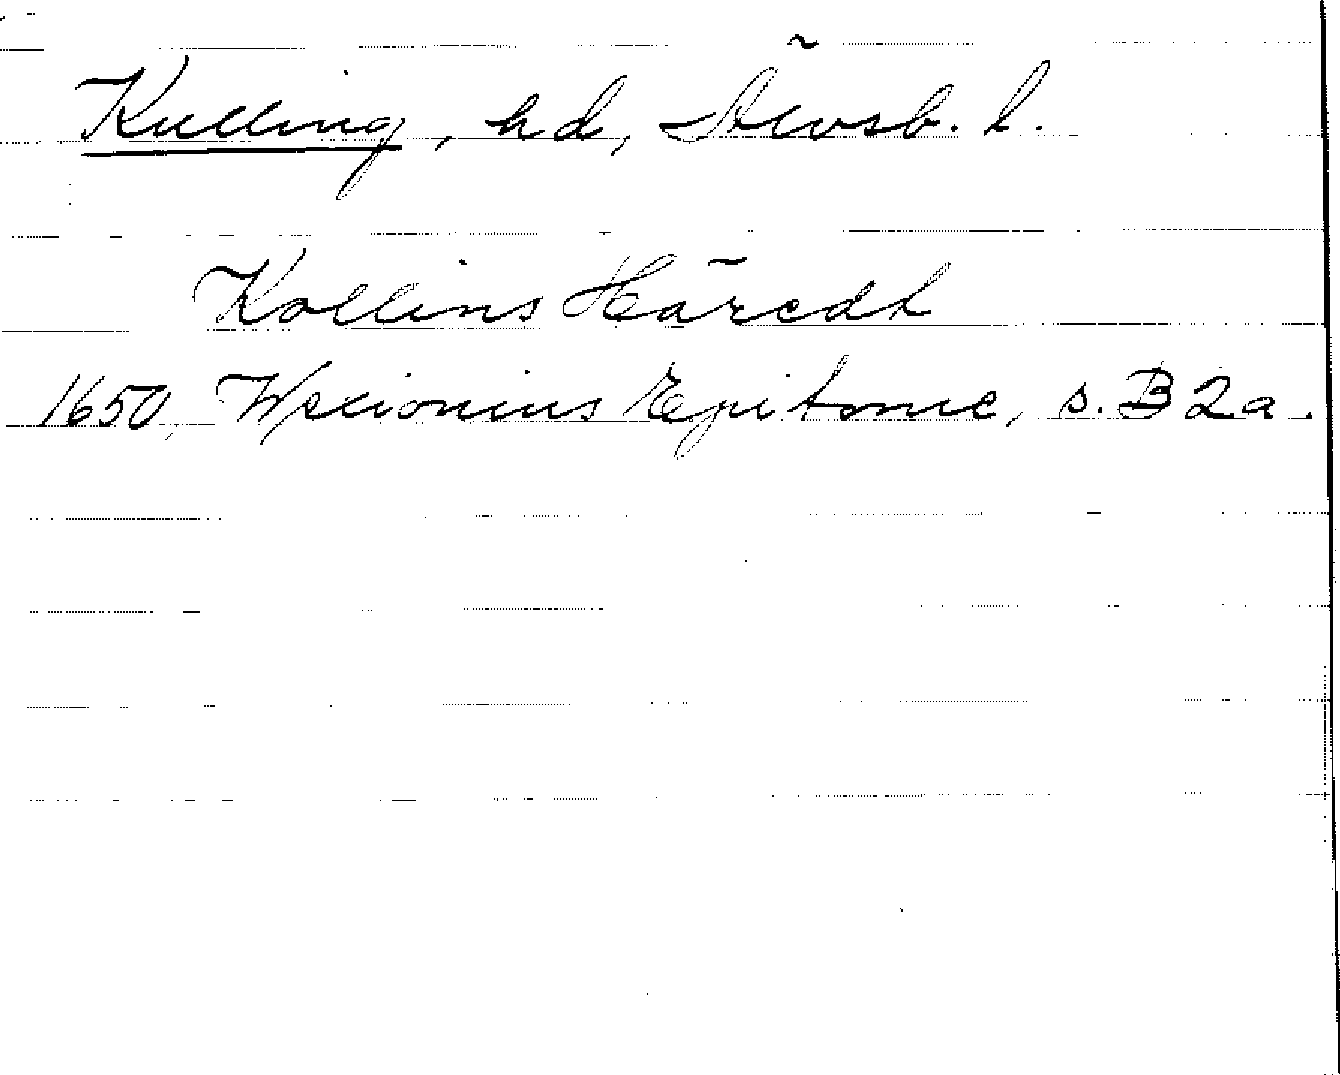 Kulling, hd, Älvsb. l.
Kollins Häredh
1650, Wexionius Epitome, s. B2a.